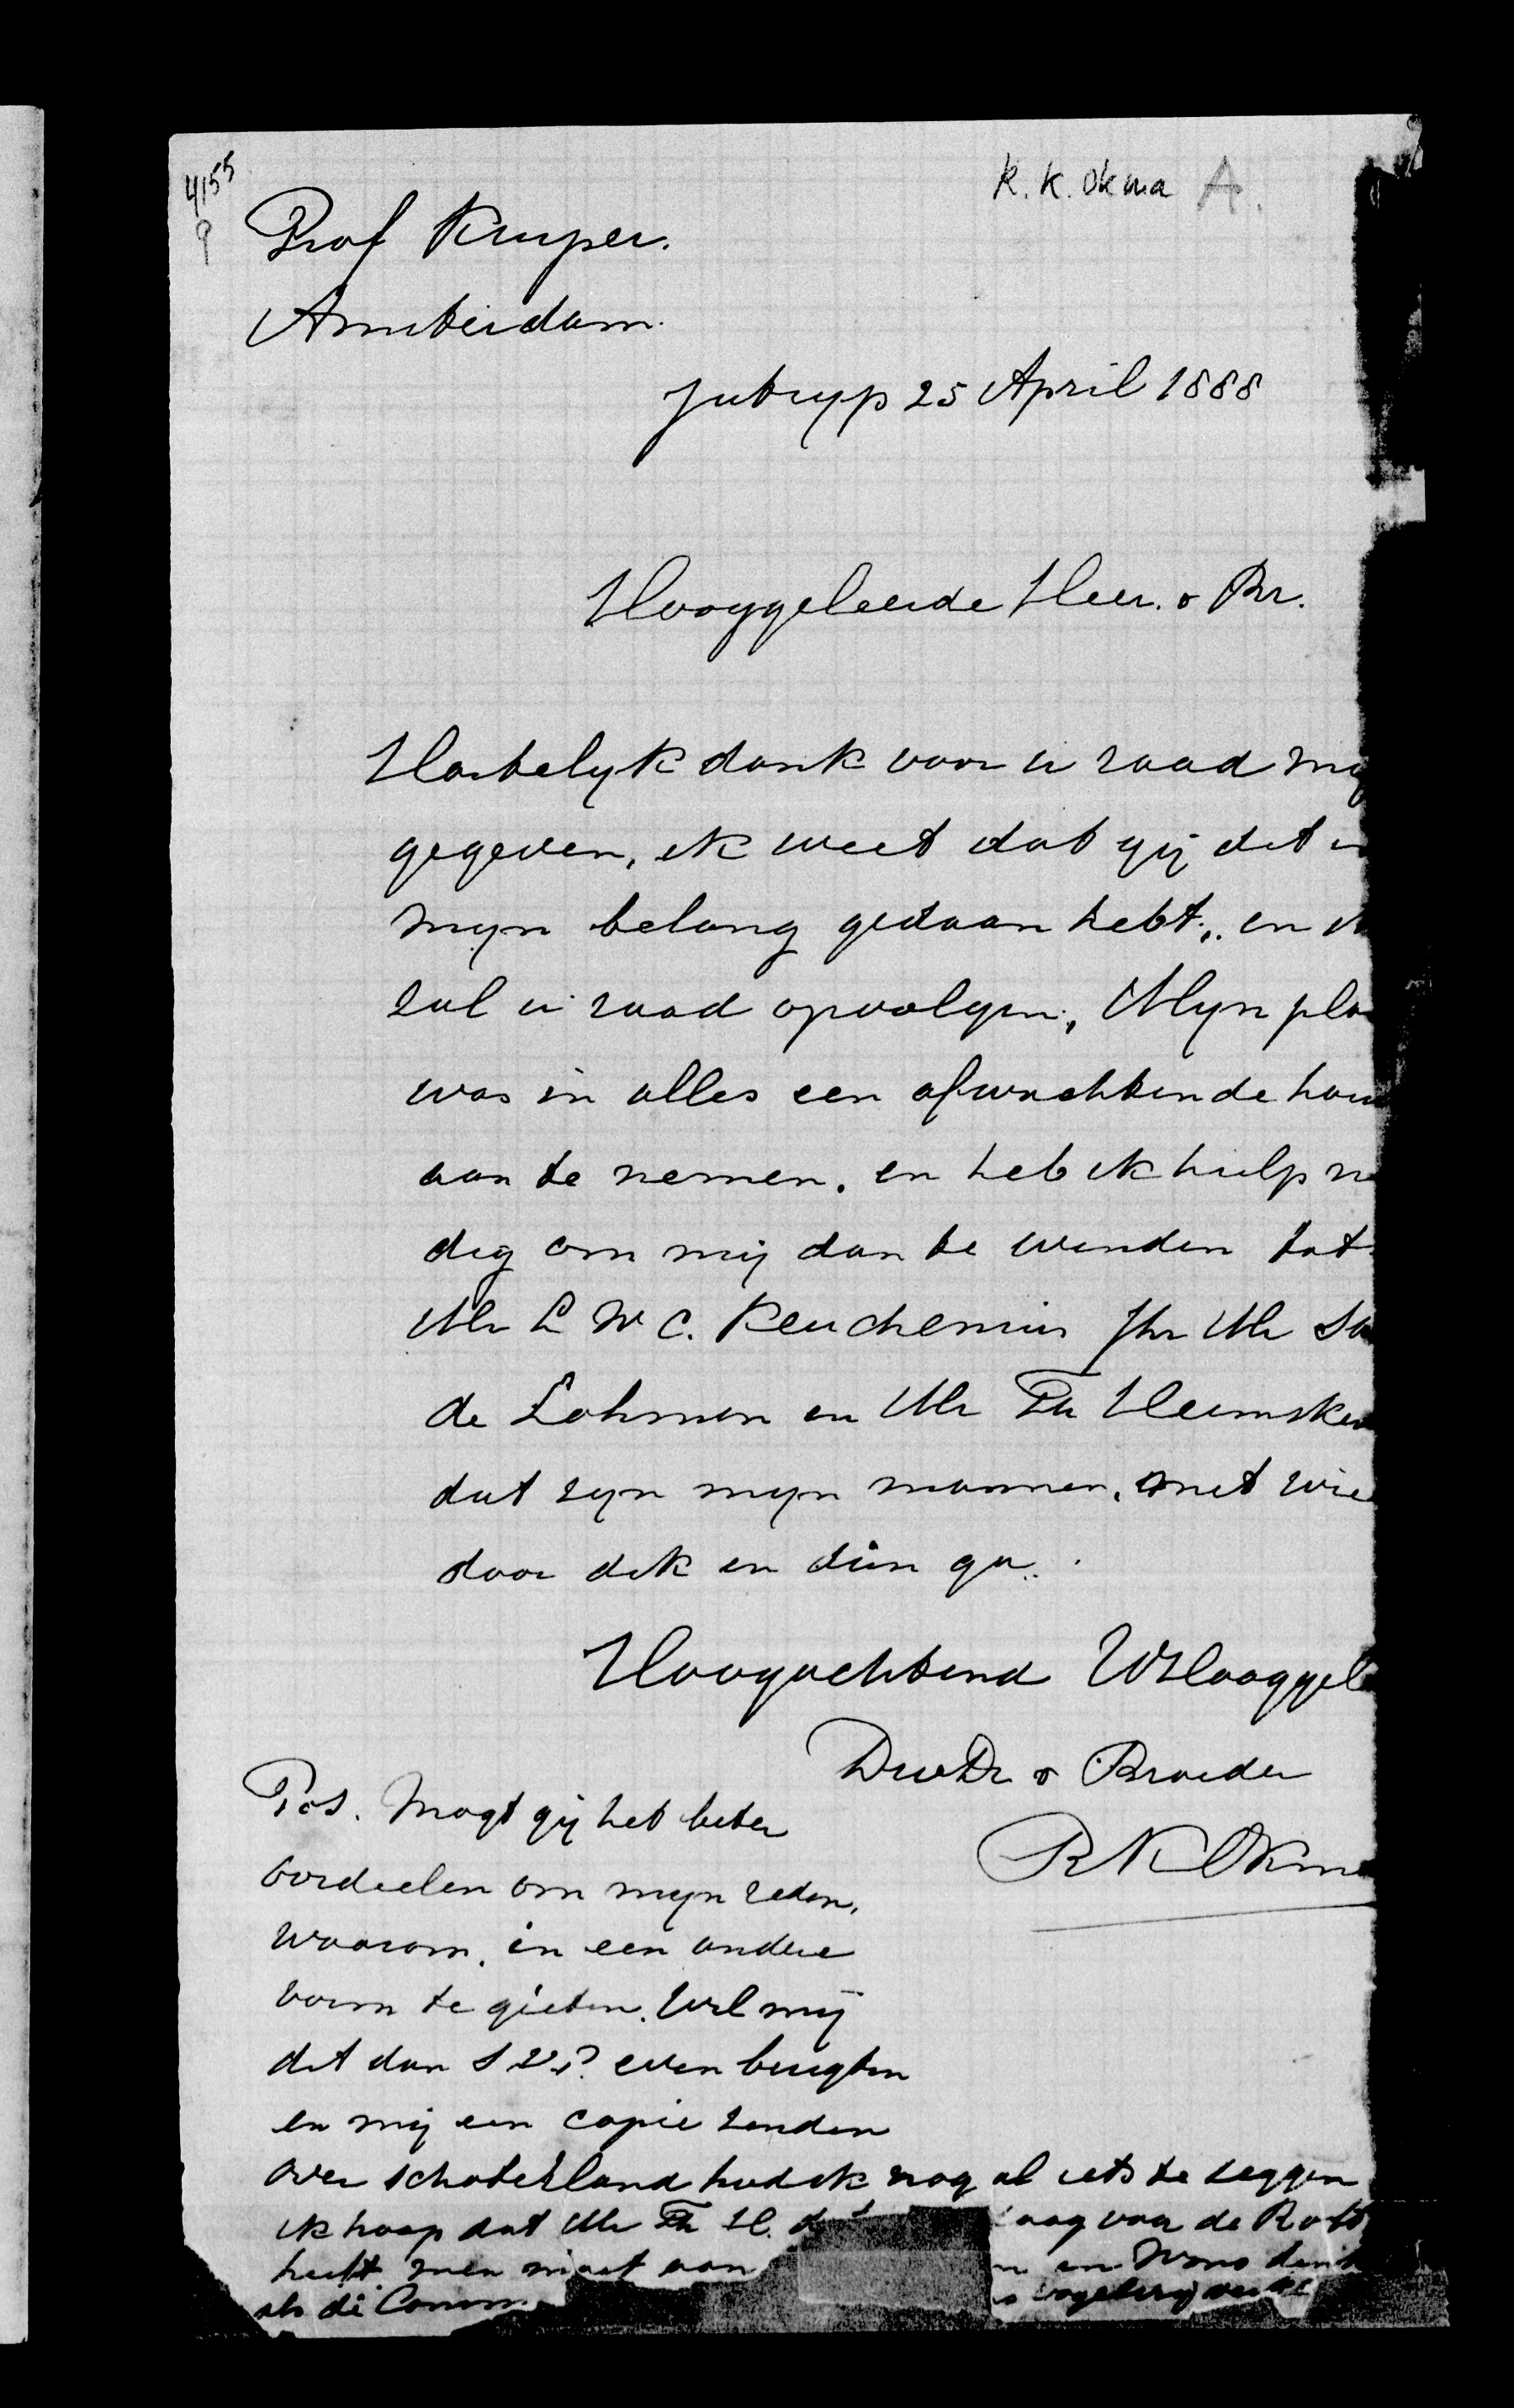 4155
9
K. K. Okma A.
Prof Kuyper.
Amsterdam.
Jutryp 25 April 1888
Hooggeleerde Heer. & Br.
Hartelyk dank voor u raad my
gegeven, ik weet dat gij dit
myn belang gedaan hebt, en
zal u raad opvolgen, Myn
was in alles een afwachtende
aan te nemen. en heb ik hulp
dig om mij dan te wenden tot
Mr L W C. Keuchenius Jhr Mr
de Lohman en Mr Th Heemsker
dat zyn myn mannen, met wie
door dik en dun ga.
Hoogachtend UHooggel
DwDr & Broeder
R K Okma
Pos. Mogt gij het beter
oordeelen om myn reden,
waarom, in een andere
vorm te gieten. Wil mij
dit dan S.V.P. even
en mij een copie zenden
Over Schoterland had ik nog al iets te zeggen
ik hoop dat Mr Th H. voor de
heeft men moet aan
als di Comm